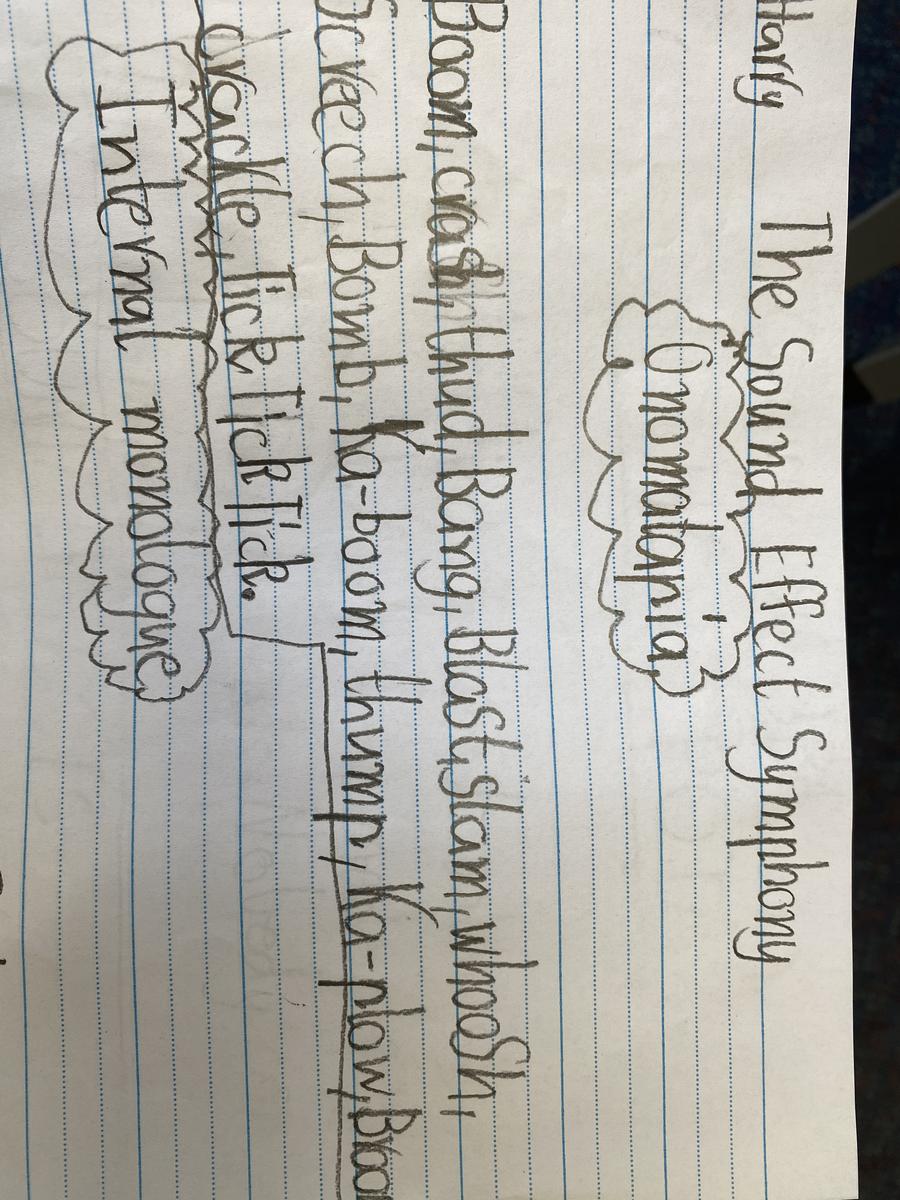 Harry
The Sound Effect Symphony
Onomatopia
Boom, crash, thud, Bang, Blast, slam, whoosh,
Screech, Bomb, Ka-boom, thump, Ka-plow,
crackle, Tick Tick Tick Tick.
Internal monologue